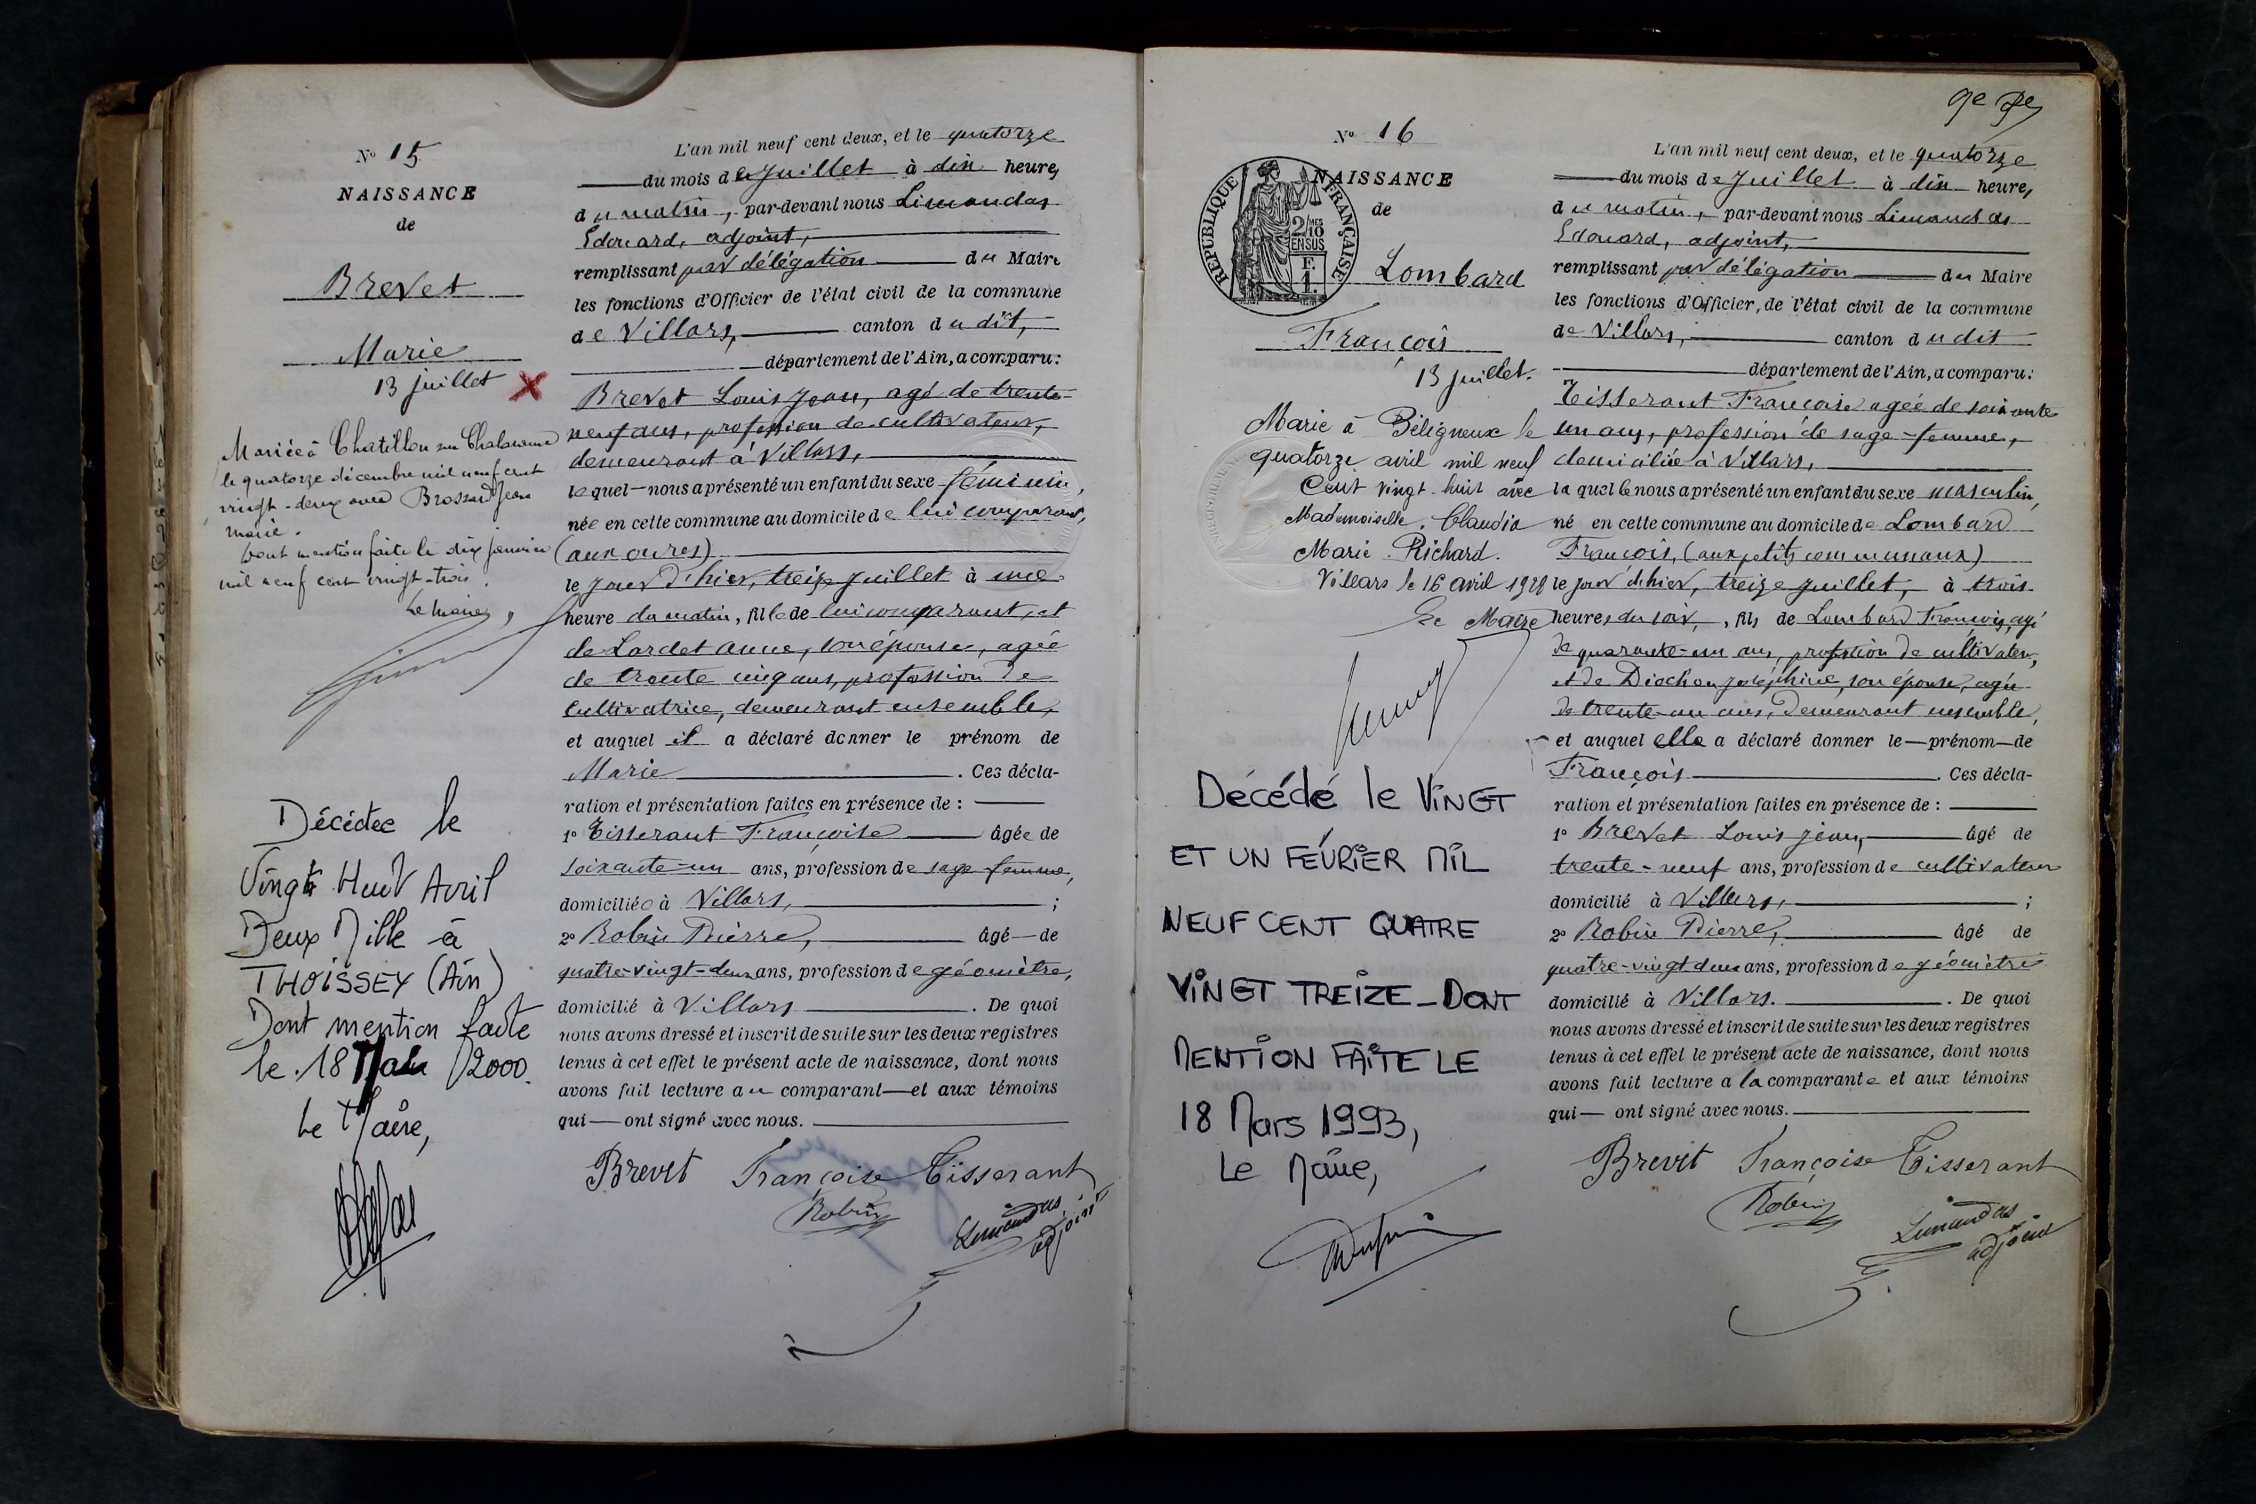 N° 15
NAISSANCE
de
Brevet
Marie
13 juillet
Mariée à Chatillon sur Chalaronne
le quatorze décembre mil neuf cent
vingt-deux avec Brossard Jean
marie.
Dont mention faite le dix janvier
mil neuf cent vingt-trois.
Le maire,
Décédée le
Vingt Huit Avril
Deux Mille à
THOISSEY (Ain)
Dont mention faite
le 18 Mai 2000.
Le Maire,
L'an mil neuf cent deux, et le quatorze
du mois de Juillet à dix heures,
du matin, par-devant nous Limandas
Edouard, adjoint,
remplissant par délégation du Maire
les fonctions d'Officier de l'état civil de la commune
de Villars, canton dudit,
département de l'Ain, a comparu:
Brevet Louis Jean, agé de trente-
neuf ans, profession de cultivateur,
demeurant à Villars,
lequel nous a présenté un enfant du sexe féminin,
née en cette commune au domicile de lui comparant,
(aux oures)
le jour d'hier, treize juillet à une
heure du matin, fille de lui comparant, et
de Lardet Anne, son épouse, agée
de trente cinq ans, profession de
cultivatrice, demeurant ensemble,
et auquel il a déclaré donner le prénom de
Marie. Ces décla-
ration et présentation faites en présence de :
1° Tisserant Françoise âgée de
soixante-un ans, profession de sage-femme,
domiciliée à Villars, ;
2° Robin Pierre, âgé de
quatre-vingt-deux ans, profession de géomètre,
domicilié à Villars. De quoi
nous avons dressé et inscrit de suite sur les deux registres
tenus à cet effet le présent acte de naissance, dont nous
avons fait lecture au comparant et aux témoins
qui ont signé avec nous.
Brevet Françoise Tisserant
Robin
Limandas
adjoint
9e
N° 16
RÉPUBLIQUE FRANÇAISE
2/10 MES
EN SUS
F.
1.
NAISSANCE
de
Lombard
François
13 juillet.
Marié à Béligneux le
quatorze avril mil neuf
cent vingt-huit avec
Mademoiselle Claudia
Marie Richard.
Villars le 16 avril 1928
Le Maire
Décédé le VINGT
ET UN FÉVRIER MIL
NEUF CENT QUATRE
VINGT TREIZE_DONT
MENTION FAITE LE
18 Mars 1993,
Le Maire,
L'an mil neuf cent deux, et le quatorze
du mois de Juillet à dix heures,
du matin, par-devant nous Limandas
Edouard, adjoint,
remplissant par délégation du Maire
les fonctions d'Officier de l'état civil de la commune
de Villars, canton dudit
département de l'Ain, a comparu:
Tisserant Françoise agée de soixante
un ans, profession de sage-femme,
domiciliée à Villars,
laquelle nous a présenté un enfant du sexe masculin,
né en cette commune au domicile de Lombard
François, (aux petits communaux)
le jour d'hier, treize juillet, à trois
heures du soir, fils de Lombard François, agé
de quarante-un ans, profession de cultivateur,
et de Diochon Joséphine, son épouse, agée
de trente-un ans, demeurant ensemble,
et auquel elle a déclaré donner le prénom de
François. Ces décla-
ration et présentation faites en présence de :
1° Brevet Louis Jean, âgé de
trente-neuf ans, profession de cultivateur
domicilié à Villars, ;
2° Robin Pierre, âgé de
quatre-vingt deux ans, profession de géomètre
domicilié à Villars. De quoi
nous avons dressé et inscrit de suite sur les deux registres
tenus à cet effet le présent acte de naissance, dont nous
avons fait lecture à la comparante et aux témoins
qui ont signé avec nous.
Brevet Françoise Tisserant
Robin
Limandas
adjoint